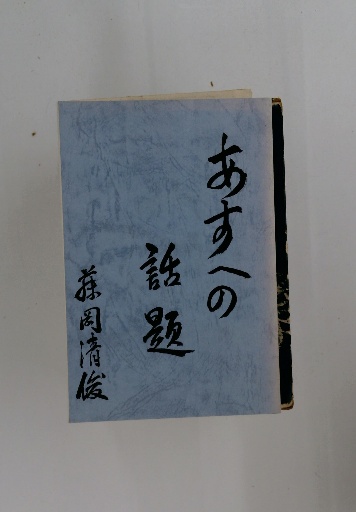 あすへの
話題
藤岡清俊